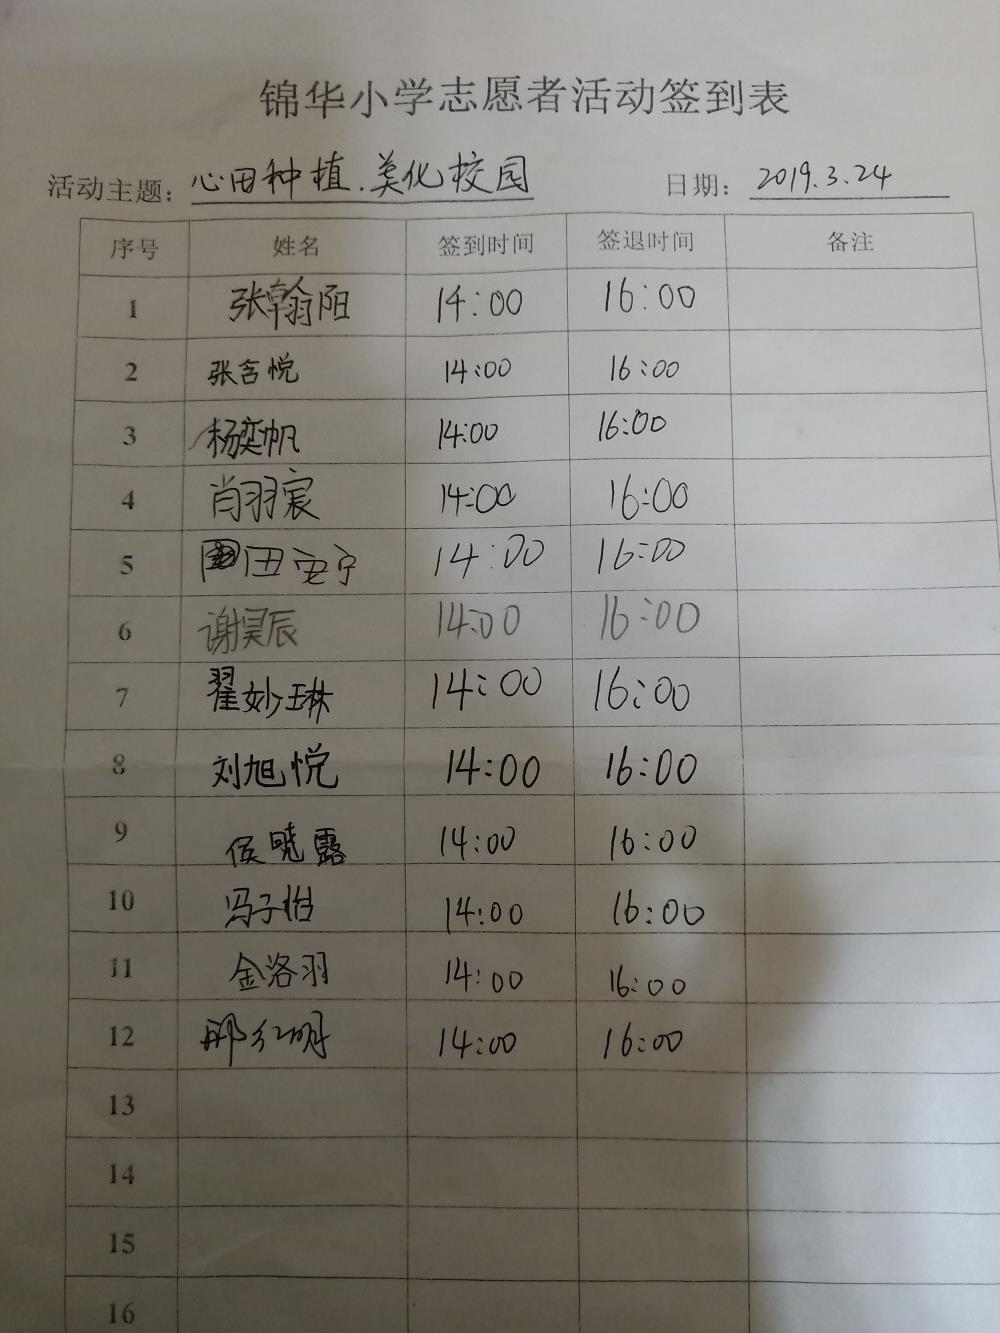 锦华小学志愿者活动签到表
活动主题：心田种植.美化校园 日期：2019.3.24
序号 姓名 签到时间 签退时间 备注
1 张翰阳 14:00 16:00
2 张含悦 14:00 16:00
3 杨奕帆 14:00 16:00
4 肖羽宸 14:00 16:00
5 田安宁 14:00 16:00
6 谢昊辰 14:00 16:00
7 翟妙琳 14:00 16:00
8 刘旭悦 14:00 16:00
9 侯晓露 14:00 16:00
10 冯子怡 14:00 16:00
11 金洛羽 14:00 16:00
12 邢红明 14:00 16:00
13
14
15
16